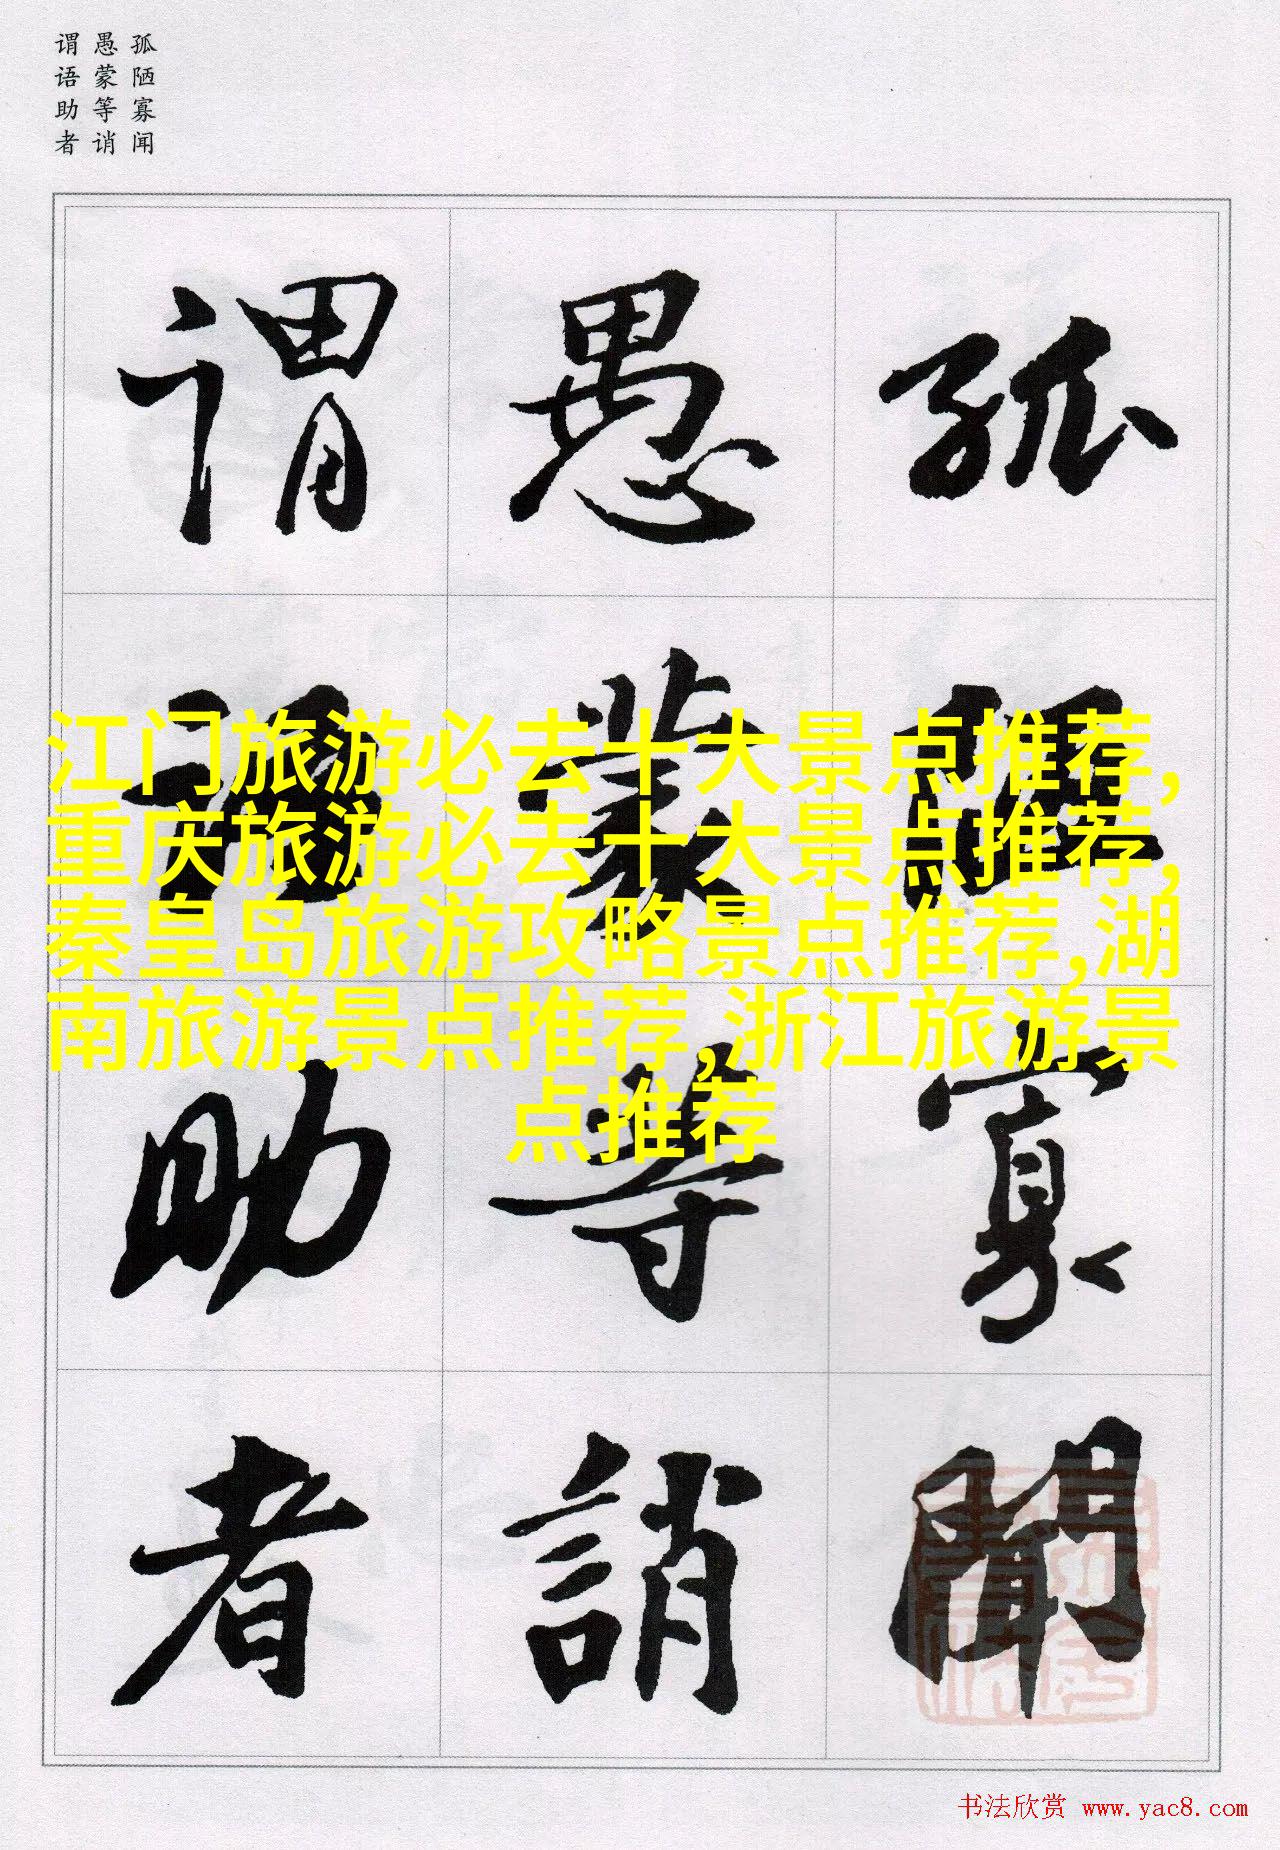 孤陋寡闻
愚蒙等诮
谓语助者
孤陋寡聞
愚蒙等誚
謂語助者
江门旅游必去十大景点推荐,
重庆旅游必去十大景点推荐,
秦皇岛旅游攻略景点推荐,湖
南旅游景点推荐,浙江旅游景
点推荐
书法欣赏 www.yac8.com